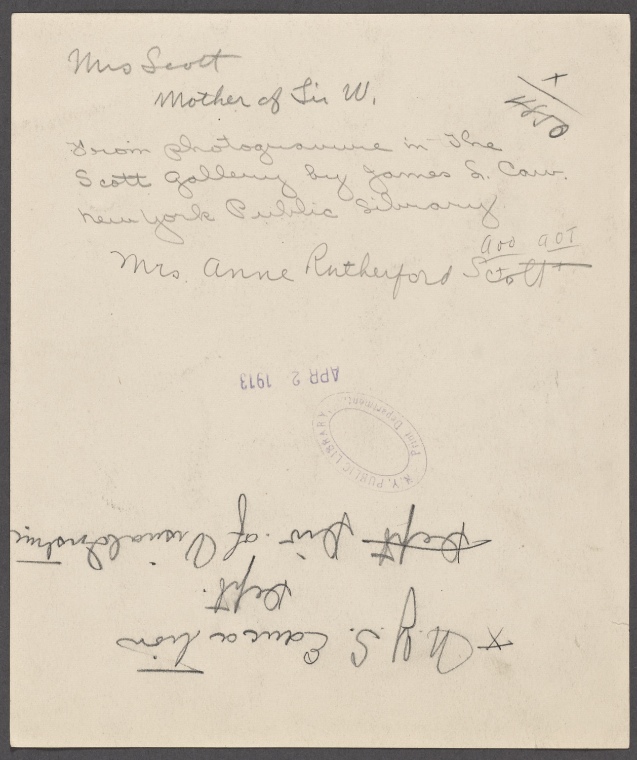 Mrs Scott
Mother of Sir W.
+
4850
From photogravure in The
Scott Gallery by James L. Caw.
New York Public Library
Mrs. Anne Rutherford Scott
APR 2 1913
N. Y. PUBLIC LIBRARY
Print Department.
x N. Y. S. Education
Dept.
Dept Div. of Visual Instruc